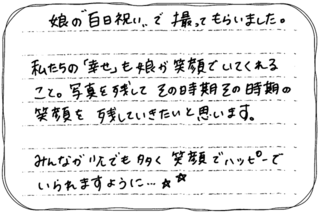 娘の"百日祝い"で撮ってもらいました。
私たちの「幸せ」も娘が笑顔でいてくれる
こと。写真を残して その時期その時期の
笑顔を 残していきたいと思います。
みんなが1つでも多く 笑顔でハッピーで
いられますように…☆☆